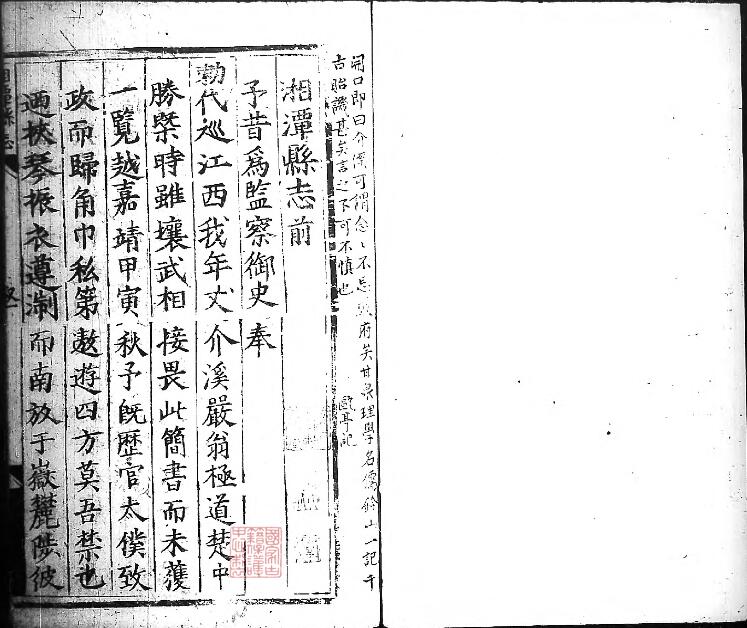 開口即曰介溪可謂念〻不忘政府矣甘泉理學名儒鈐山一記千
古貽譏甚矣言之不可不慎也
湘潭縣志前
予昔爲監察御史奉
勑代巡江西我年丈介溪嚴翁極道楚中
勝槩時雖壤武相接畏此簡書而未獲
一覽越嘉靖甲寅秋予旣歷官太僕致
政而歸角巾私第遨遊四方莫吾禁也
迺挾琴振衣遵湖而南放于嶽麓陟彼